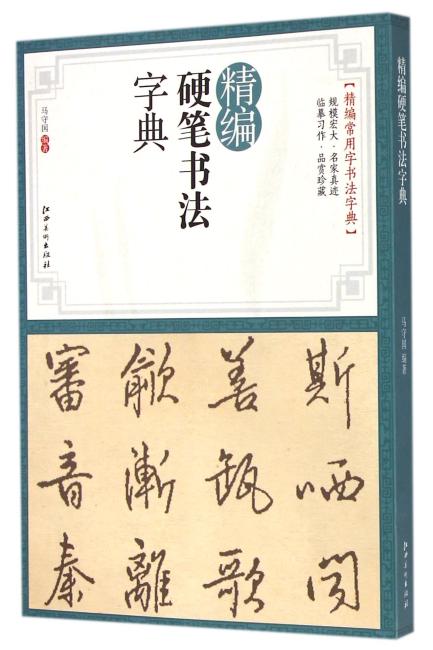 精编
硬笔书法
字典
【精编常用字书法字典】
规模宏大·名家真迹
临摹习作·品赏珍藏
马守国 编著
江西美术出版社
斯哂
善歌
漸離
審音秦
精编硬笔书法字典
马守国 编著
江西美术出版社